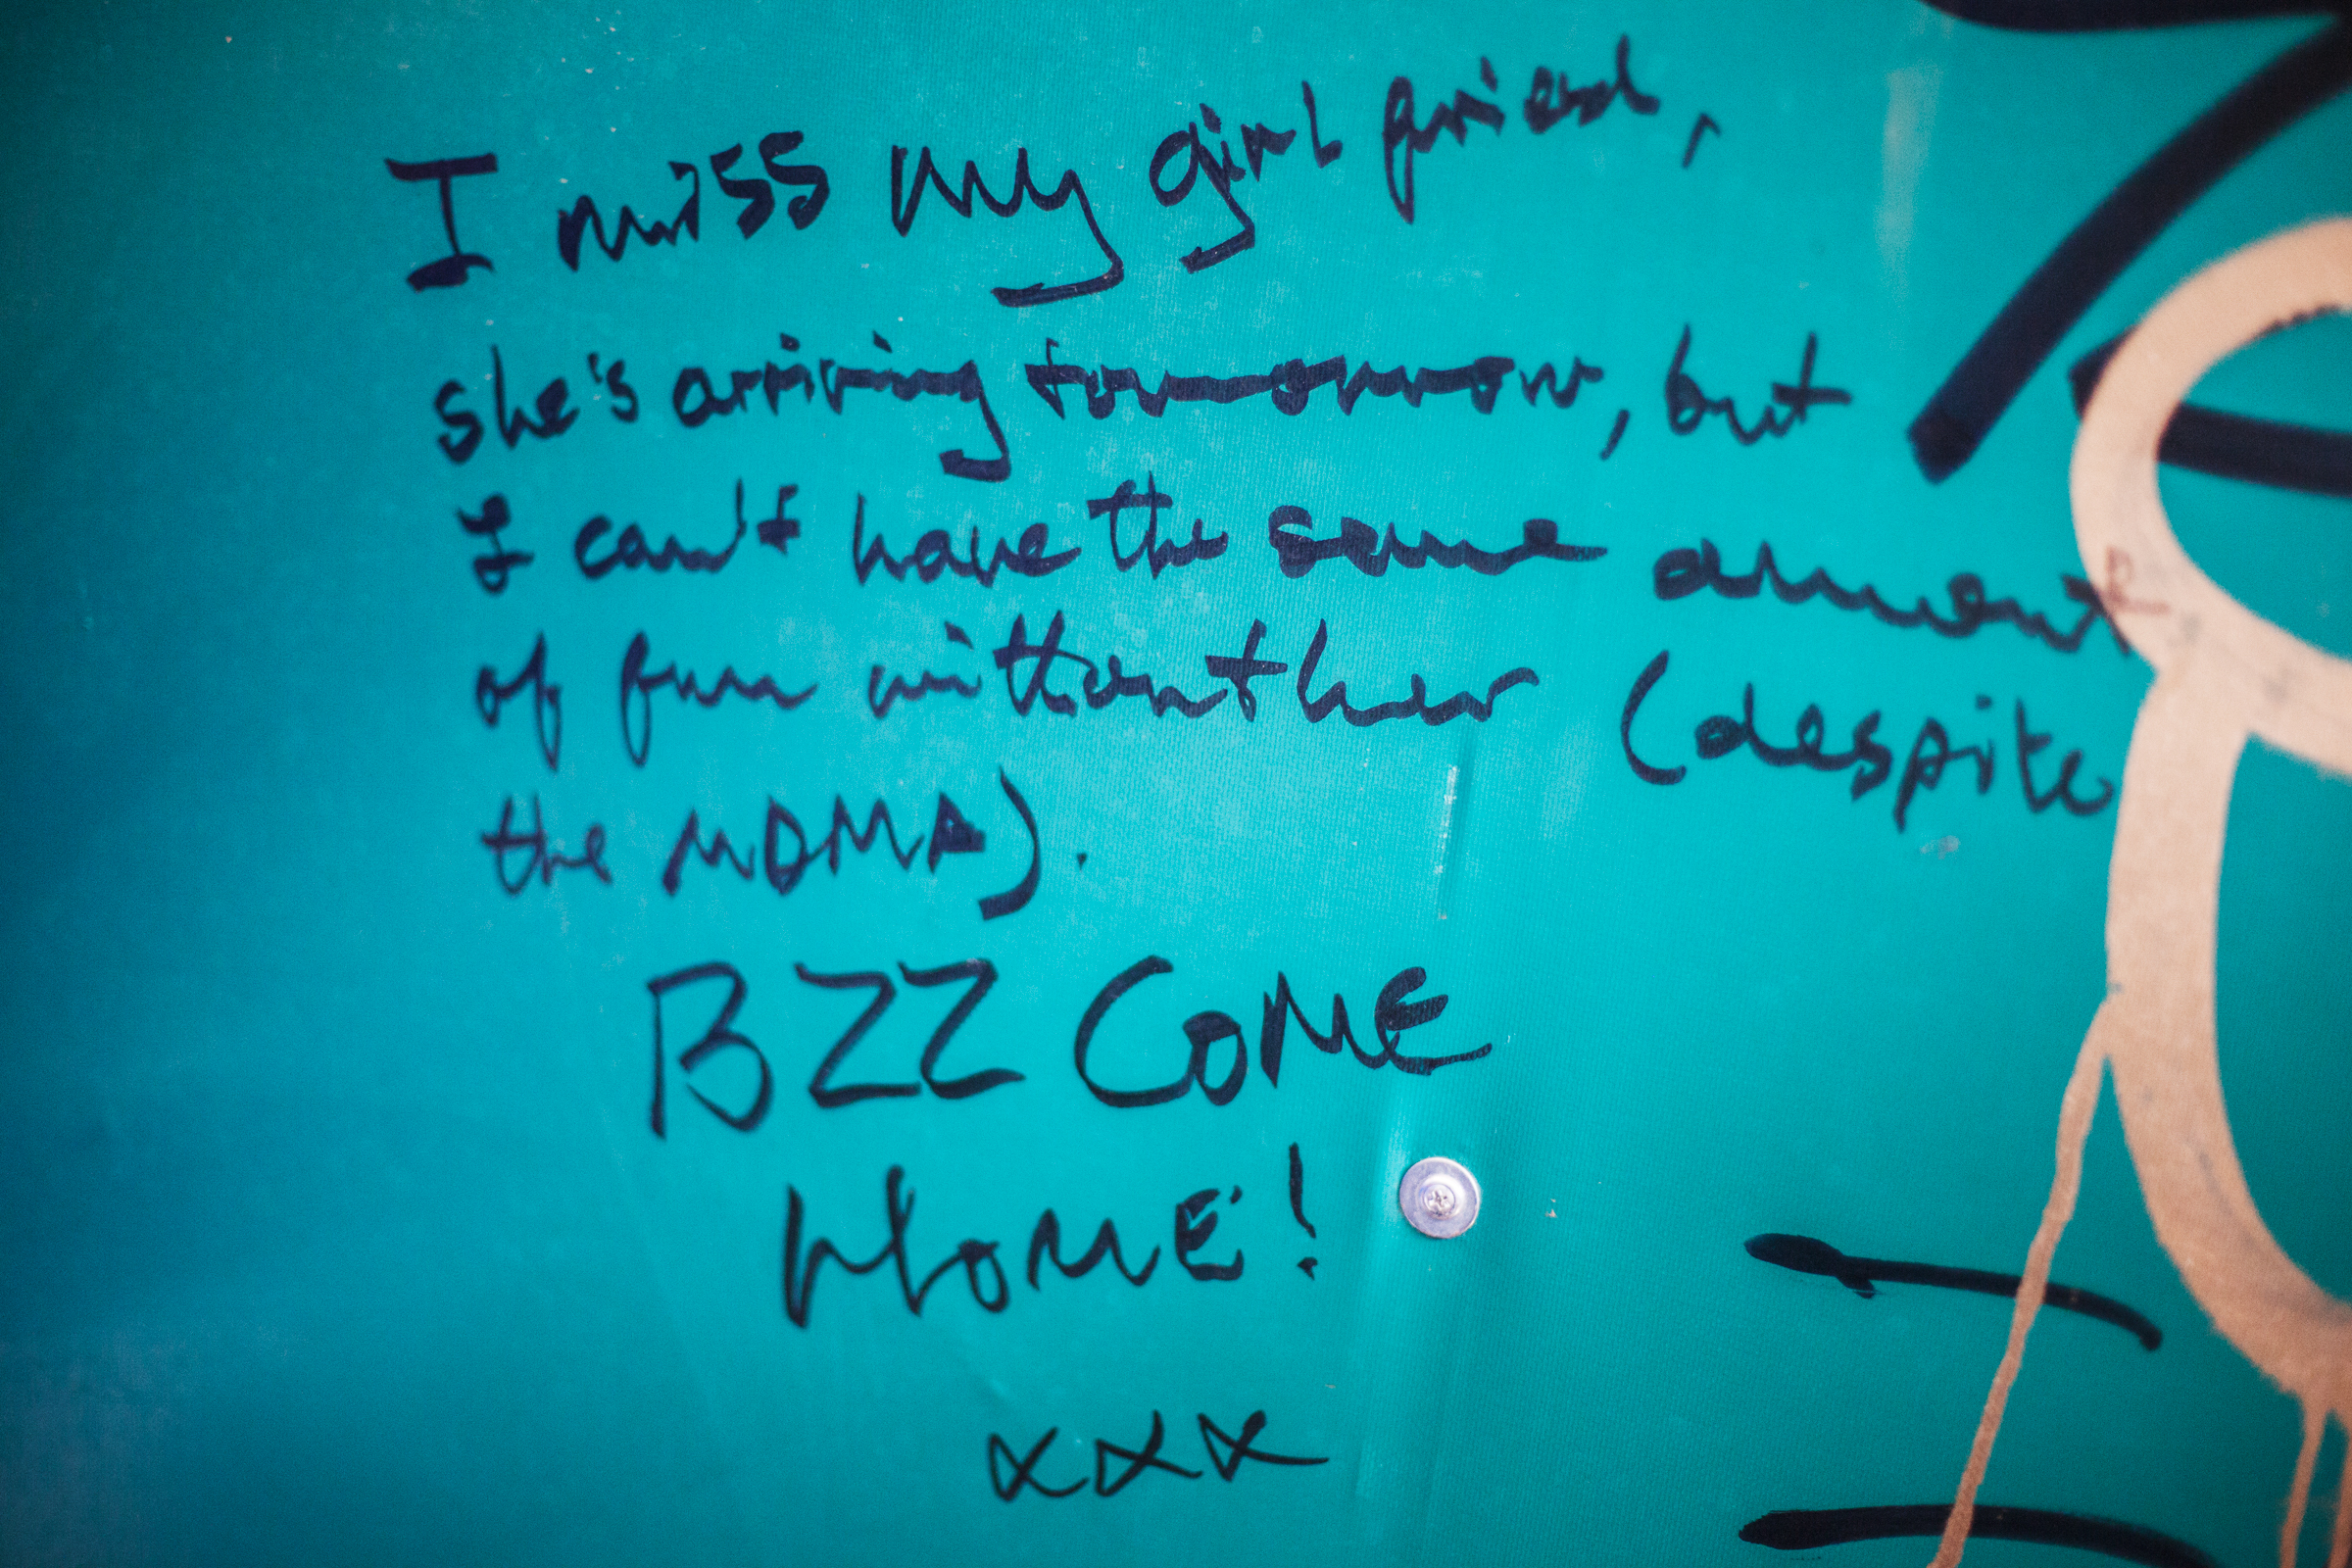 I miss my girl friend,
she's arriving tomorrow, but
I can't have the same amont
of fun without her (despite
the MDMA).
BZZ COME
HOME!
xxx